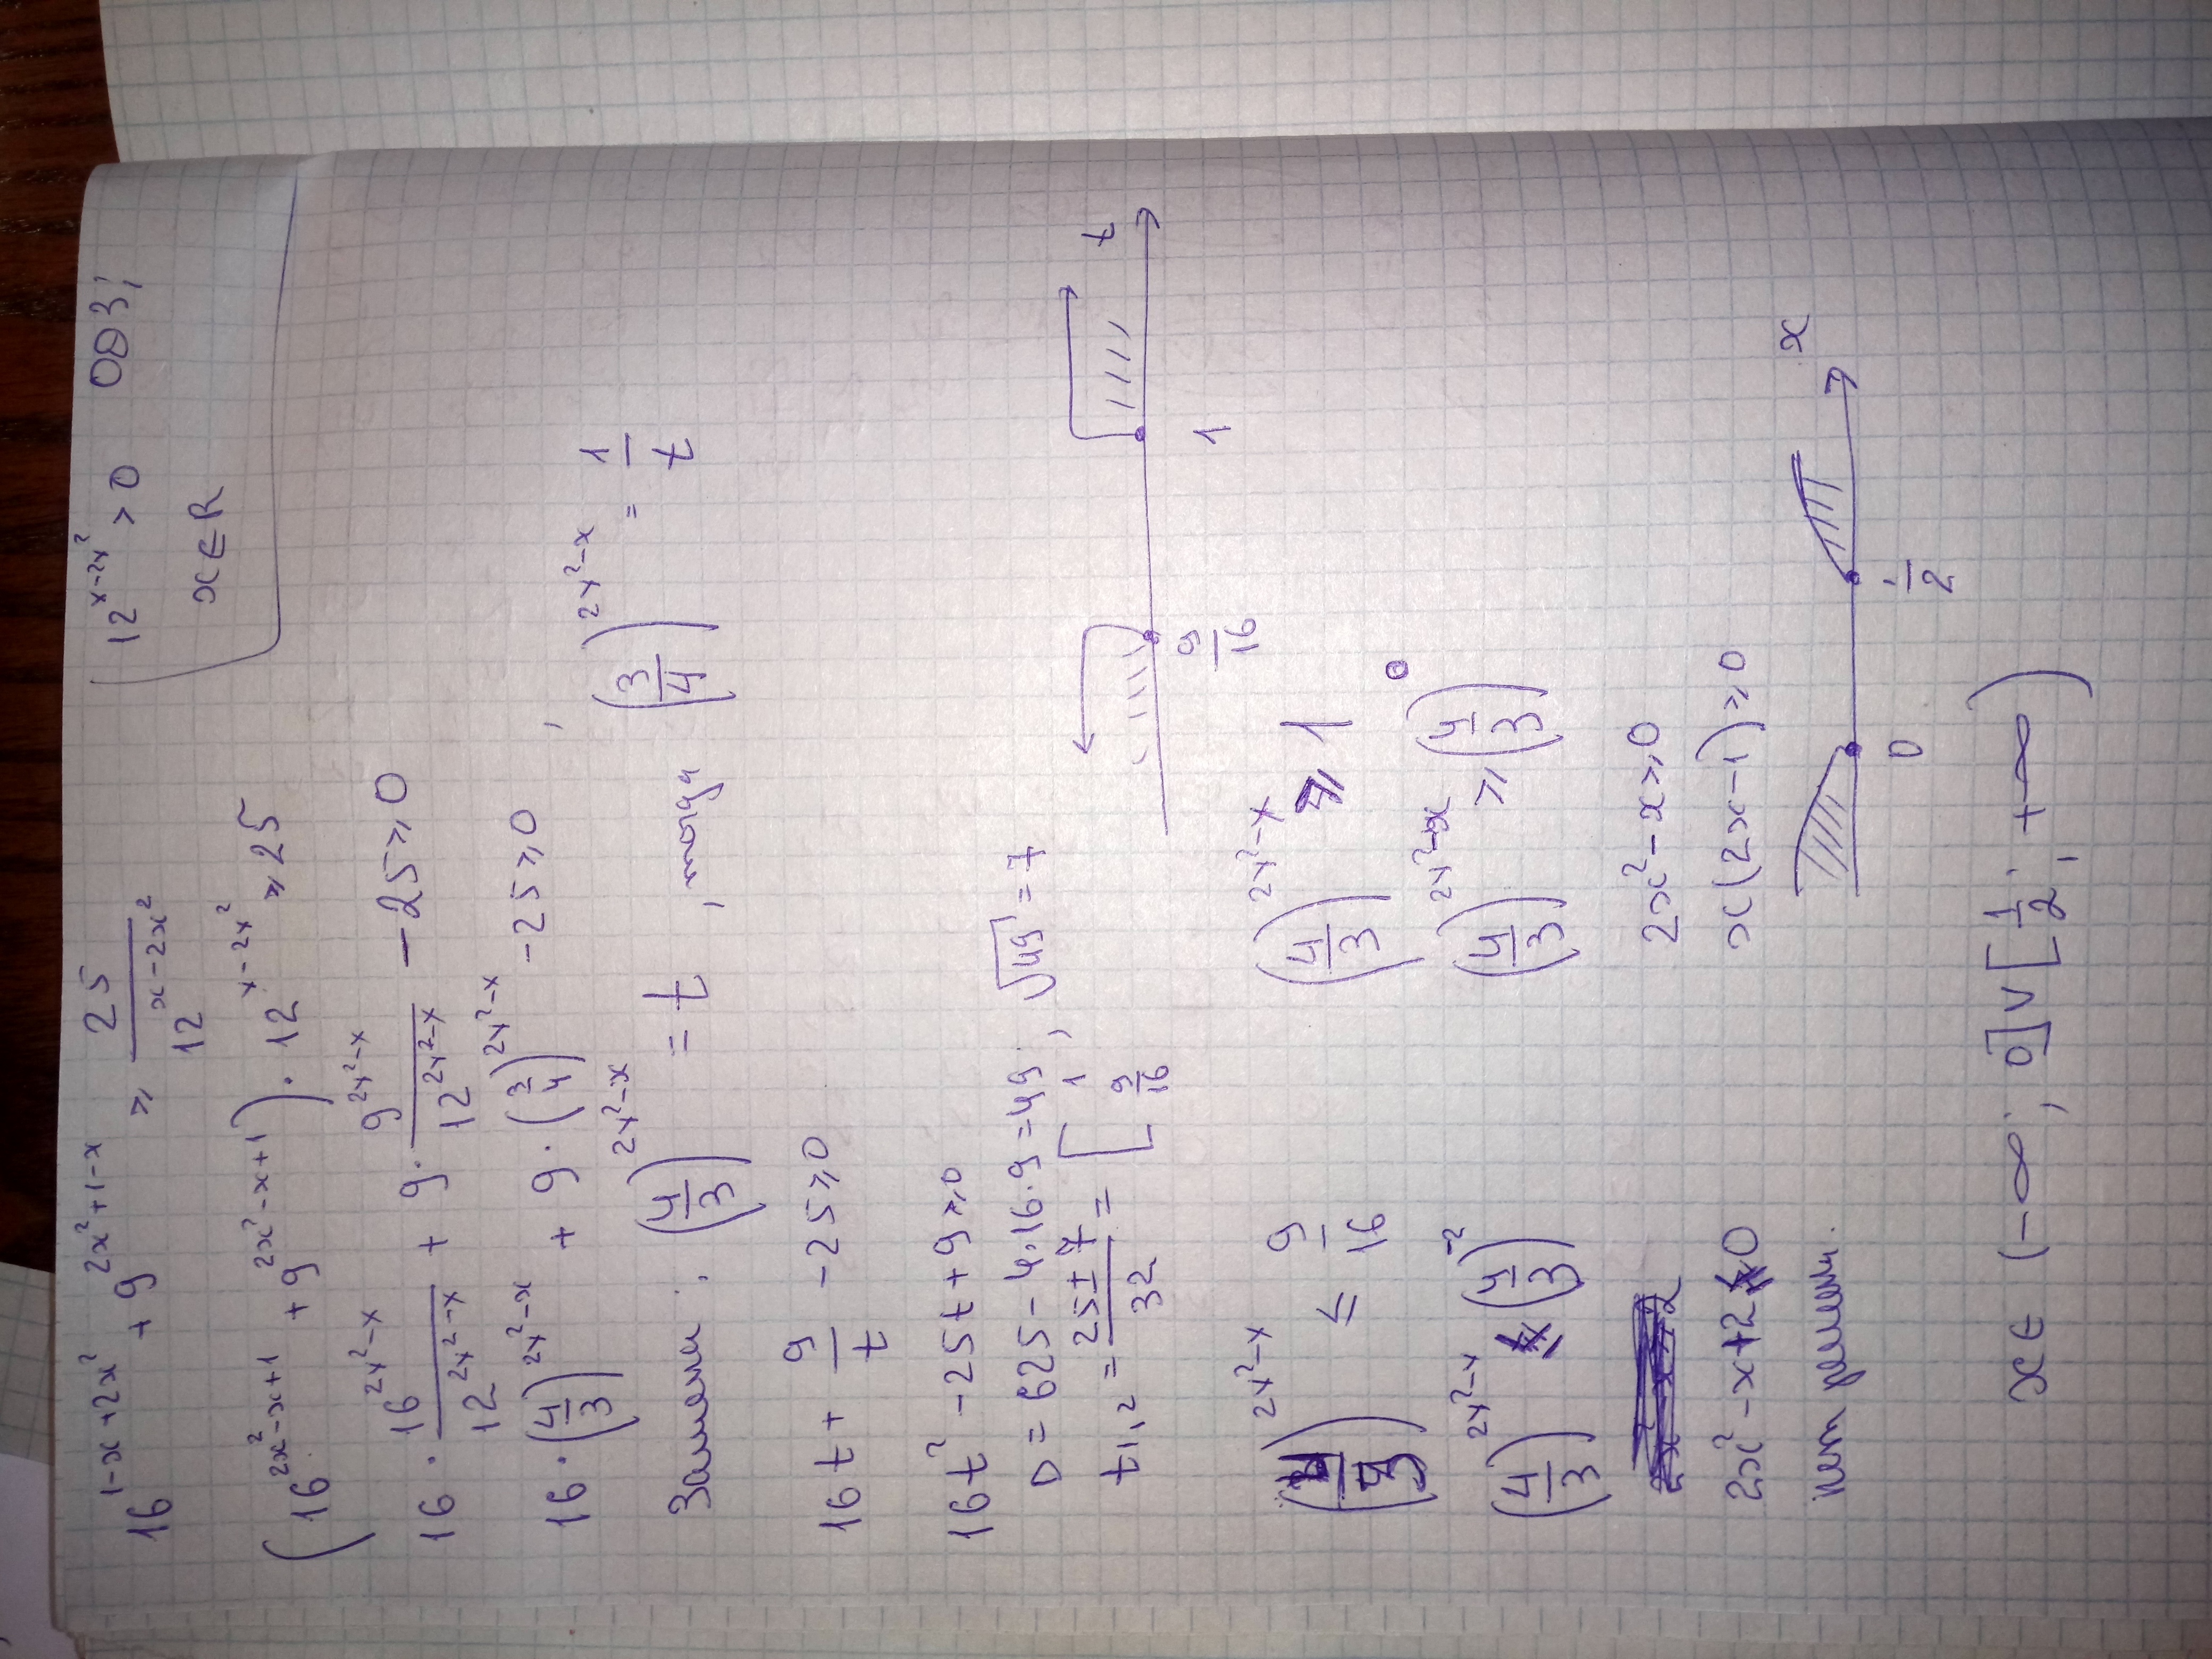 16^{1-x+2x²} + 9^{2x²+1-x} ≥ 25/12^{x-2x²}
12^{x-2x²} > 0 ОДЗ;
x∈R
(16^{2x²-x+1} + 9^{2x²-x+1}) · 12^{x-2x²} ≥ 25
16 · 16^{2x²-x}/12^{2x²-x} + 9 · 9^{2x²-x}/12^{2x²-x} - 25 ≥ 0
16 · (4/3)^{2x²-x} + 9 · (3/4)^{2x²-x} - 25 ≥ 0,
Замена: (4/3)^{2x²-x} = t, тогда (3/4)^{2x²-x} = 1/t
16t + 9/t - 25 ≥ 0
16t² - 25t + 9 ≥ 0
D = 625 - 4·16·9 = 49; √49 = 7
t1,2 = (25 ± 7)/32 = [1 9/16
9/16 1 t
(4/3)^{2x²-x} ≤ 9/16
(4/3)^{2x²-x} ≤ (4/3)^{-2}
2x² - x + 2 ≤ 0
нет решений.
(4/3)^{2x²-x} ≥ 1
(4/3)^{2x²-x} ≥ (4/3)^0
2x² - x ≥ 0
x(2x-1) ≥ 0
0 1/2 x
x∈ (-∞; 0]∨[1/2; +∞)